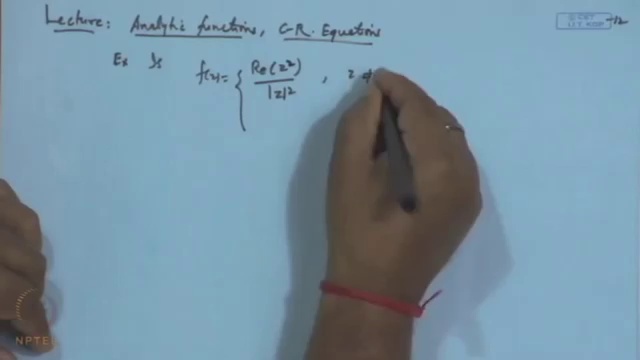 Lecture: Analytic functions, C-R. Equations
Ex Is f(z) = { Re(z²) / |z|² , z ≠
© CET
I.I.T. KGP
-12
NPTEL